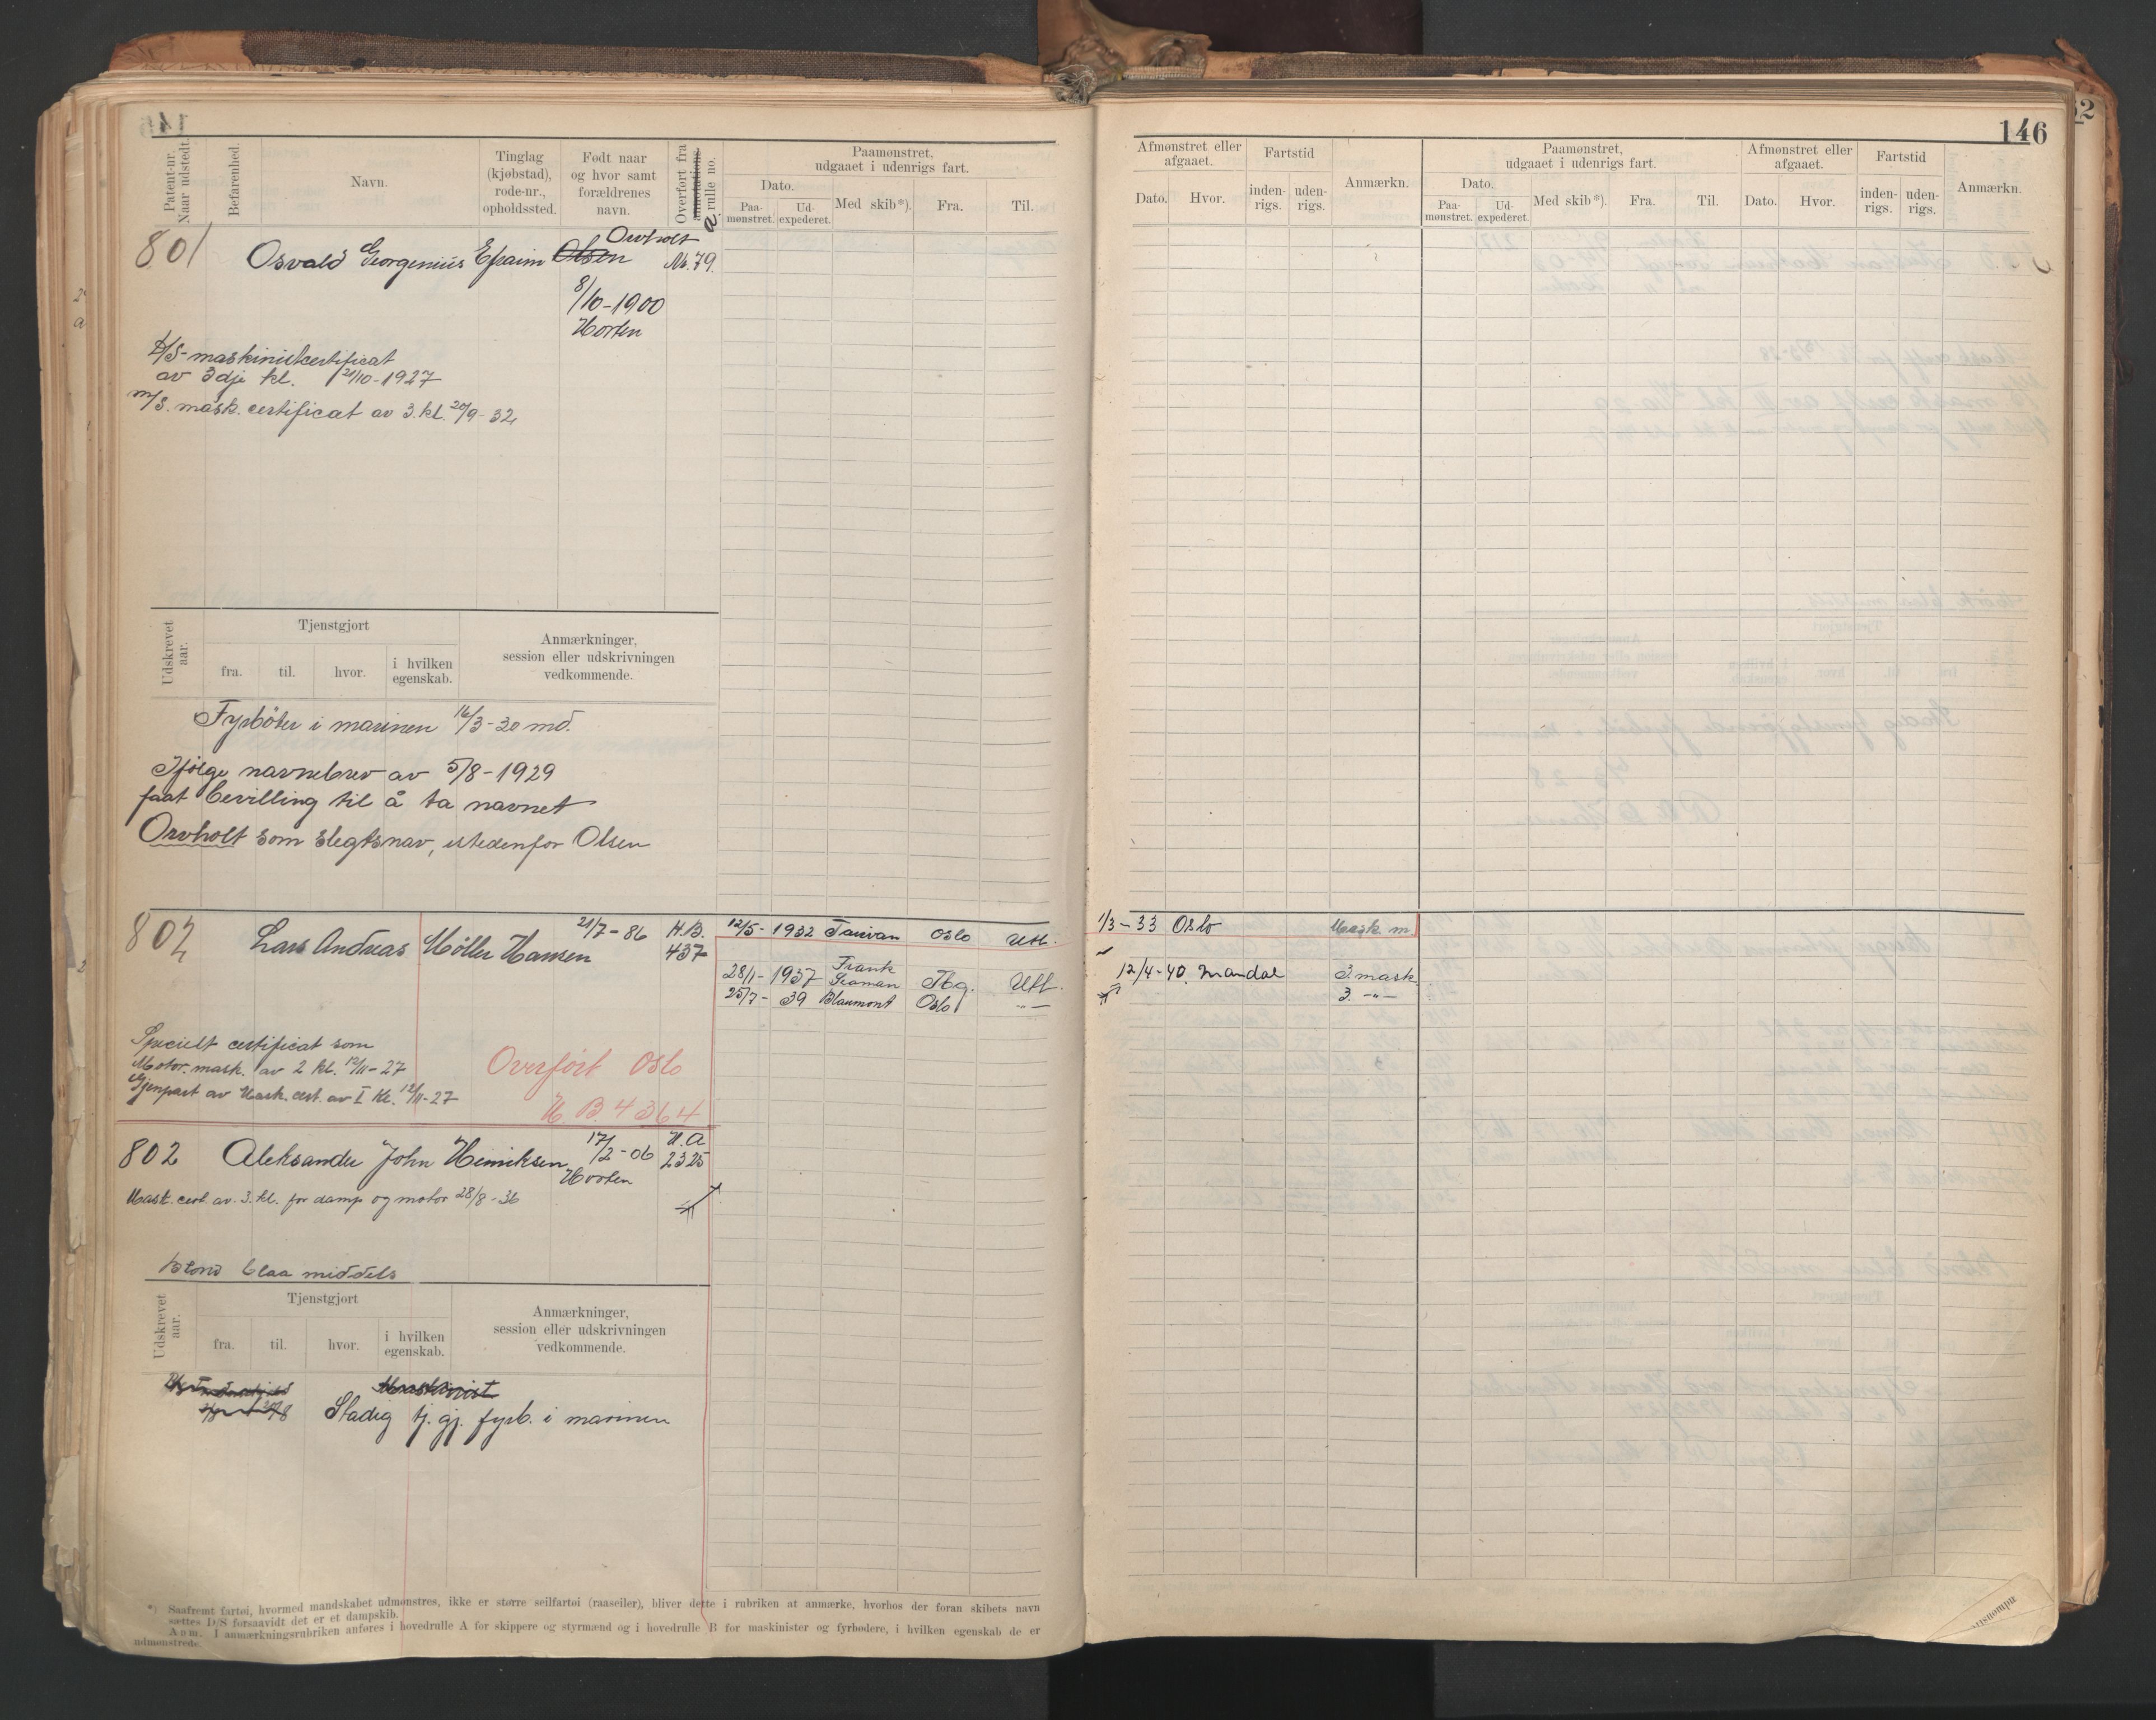 146
Patent-nr.
Naar udstedt.
Befarenhed.
Navn.
Tinglag
(kjøbstad),
rode-nr.,
opholdssted.
Født naar
og hvor samt
forældrenes
navn.
Overført fra
annotations
rulle no.
a
Paamønstret,
udgaaet i udenrigs fart.
Dato.
Paa-
mønstret.
Ud-
expederet.
Med skib*).
Fra.
Til.
Afmønstret eller
afgaaet.
Dato.
Hvor.
Fartstid
inden-
rigs.
uden-
rigs.
Anmærkn.
Paamønstret,
udgaaet i udenrigs fart.
Dato.
Paa-
mønstret.
Ud-
expederet.
Med skib*).
Fra.
Til.
Afmønstret eller
afgaaet.
Dato.
Hvor.
Fartstid
inden-
rigs.
uden-
rigs.
Anmærkn.
801
Orvholt
Osvald Georgenius Efraim Olsen Nr. 79.
8/10-1900
Horten
D/S-maskinistcertificat
av 3dje kl. 21/10-1927
m/S. mask. certificat av 3. kl. 20/9-32
Udskrevet
aar.
Tjenstgjort
fra.
til.
hvor.
i hvilken
egenskab.
Anmærkninger,
session eller udskrivningen
vedkommende.
Fyrbøter i marinen 16/3-20 md.
Ifølge navnebrev av 5/8-1929
faat bevilling til å ta navnet
Orvholt som slegtsnav, istedenfor Olsen
802
Lars Andreas Møller Hansen
21/7-86
H.B.
437
12/5-1932 Taiwan Oslo Utl.
1/3-33 Oslo Mask. m.
28/1-1937 Frank Seaman Tbg. Utl.
12/4-40. Mandal 3. mask.
25/7-39 Blaumont Oslo -"-
3. -"-
Specielt certificat som
Motor. mask. av 2 kl. 12/11-27
Gjenpart av Mask. cert. av I kl. 12/11-27
Overført Oslo
H. B. 4364
802
Aleksander John Henriksen
17/2-06
Horten
H.A
2325
Mask. cert. av. 3. kl. for damp og motor 28/8-36
Blond blaa middels
Udskrevet
aar.
Tjenstgjort
fra.
til.
hvor.
i hvilken
egenskab.
Anmærkninger,
session eller udskrivningen
vedkommende.
Maskinist
Stadig tj. gj. fyrb. i marinen
*) Saafremt fartøi, hvormed mandskabet udmønstres, ikke er større seilfartøi (raaseiler), bliver dette i rubriken at anmærke, hvorhos der foran skibets navn
sættes D/S forsaavidt det er et dampskib.
Anm. I anmærkningsrubriken anføres i hovedrulle A for skippere og styrmænd og i hovedrulle B for maskinister og fyrbødere, i hvilken egenskab de er
udmønstrede.